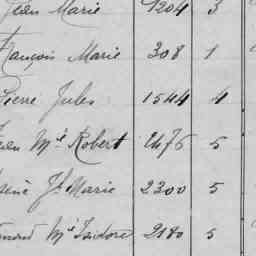 Jean Marie 1204 3
François Marie 308 1
Pierre Jules 1544 4
Jean Mie Robert 2475 5
Jh Marie 2300 5
Mie Isidore 2180 5